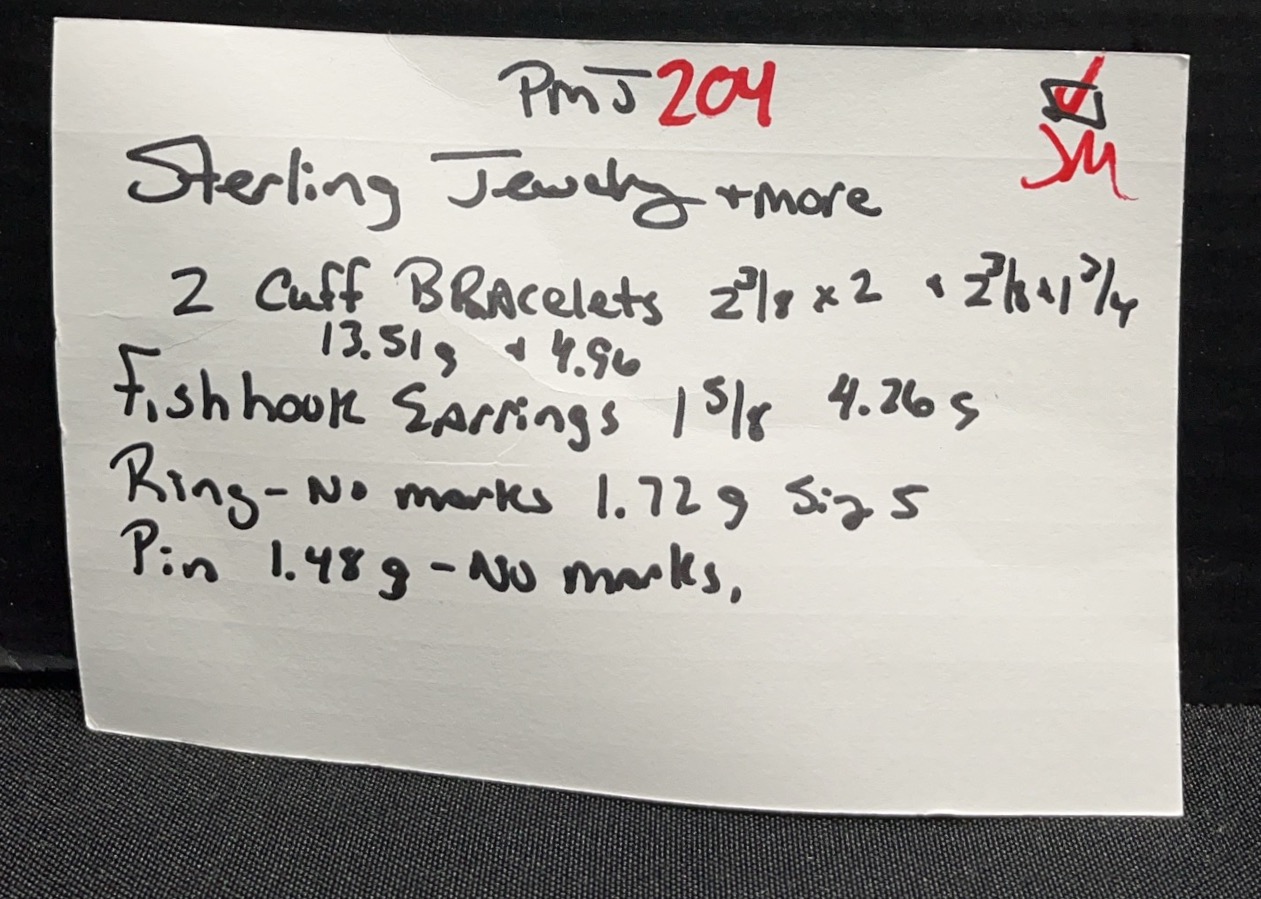 PMJ 204
JM
Sterling Jewelry + more
2 Cuff BRAcelets 2 3/8 x 2 + 2 3/8 x 1 3/4
13.51g + 4.96
Fishhook EArrings 1 5/8 4.26 g
Ring - No marks 1.72 g Siz 5
Pin 1.48 g - No marks.